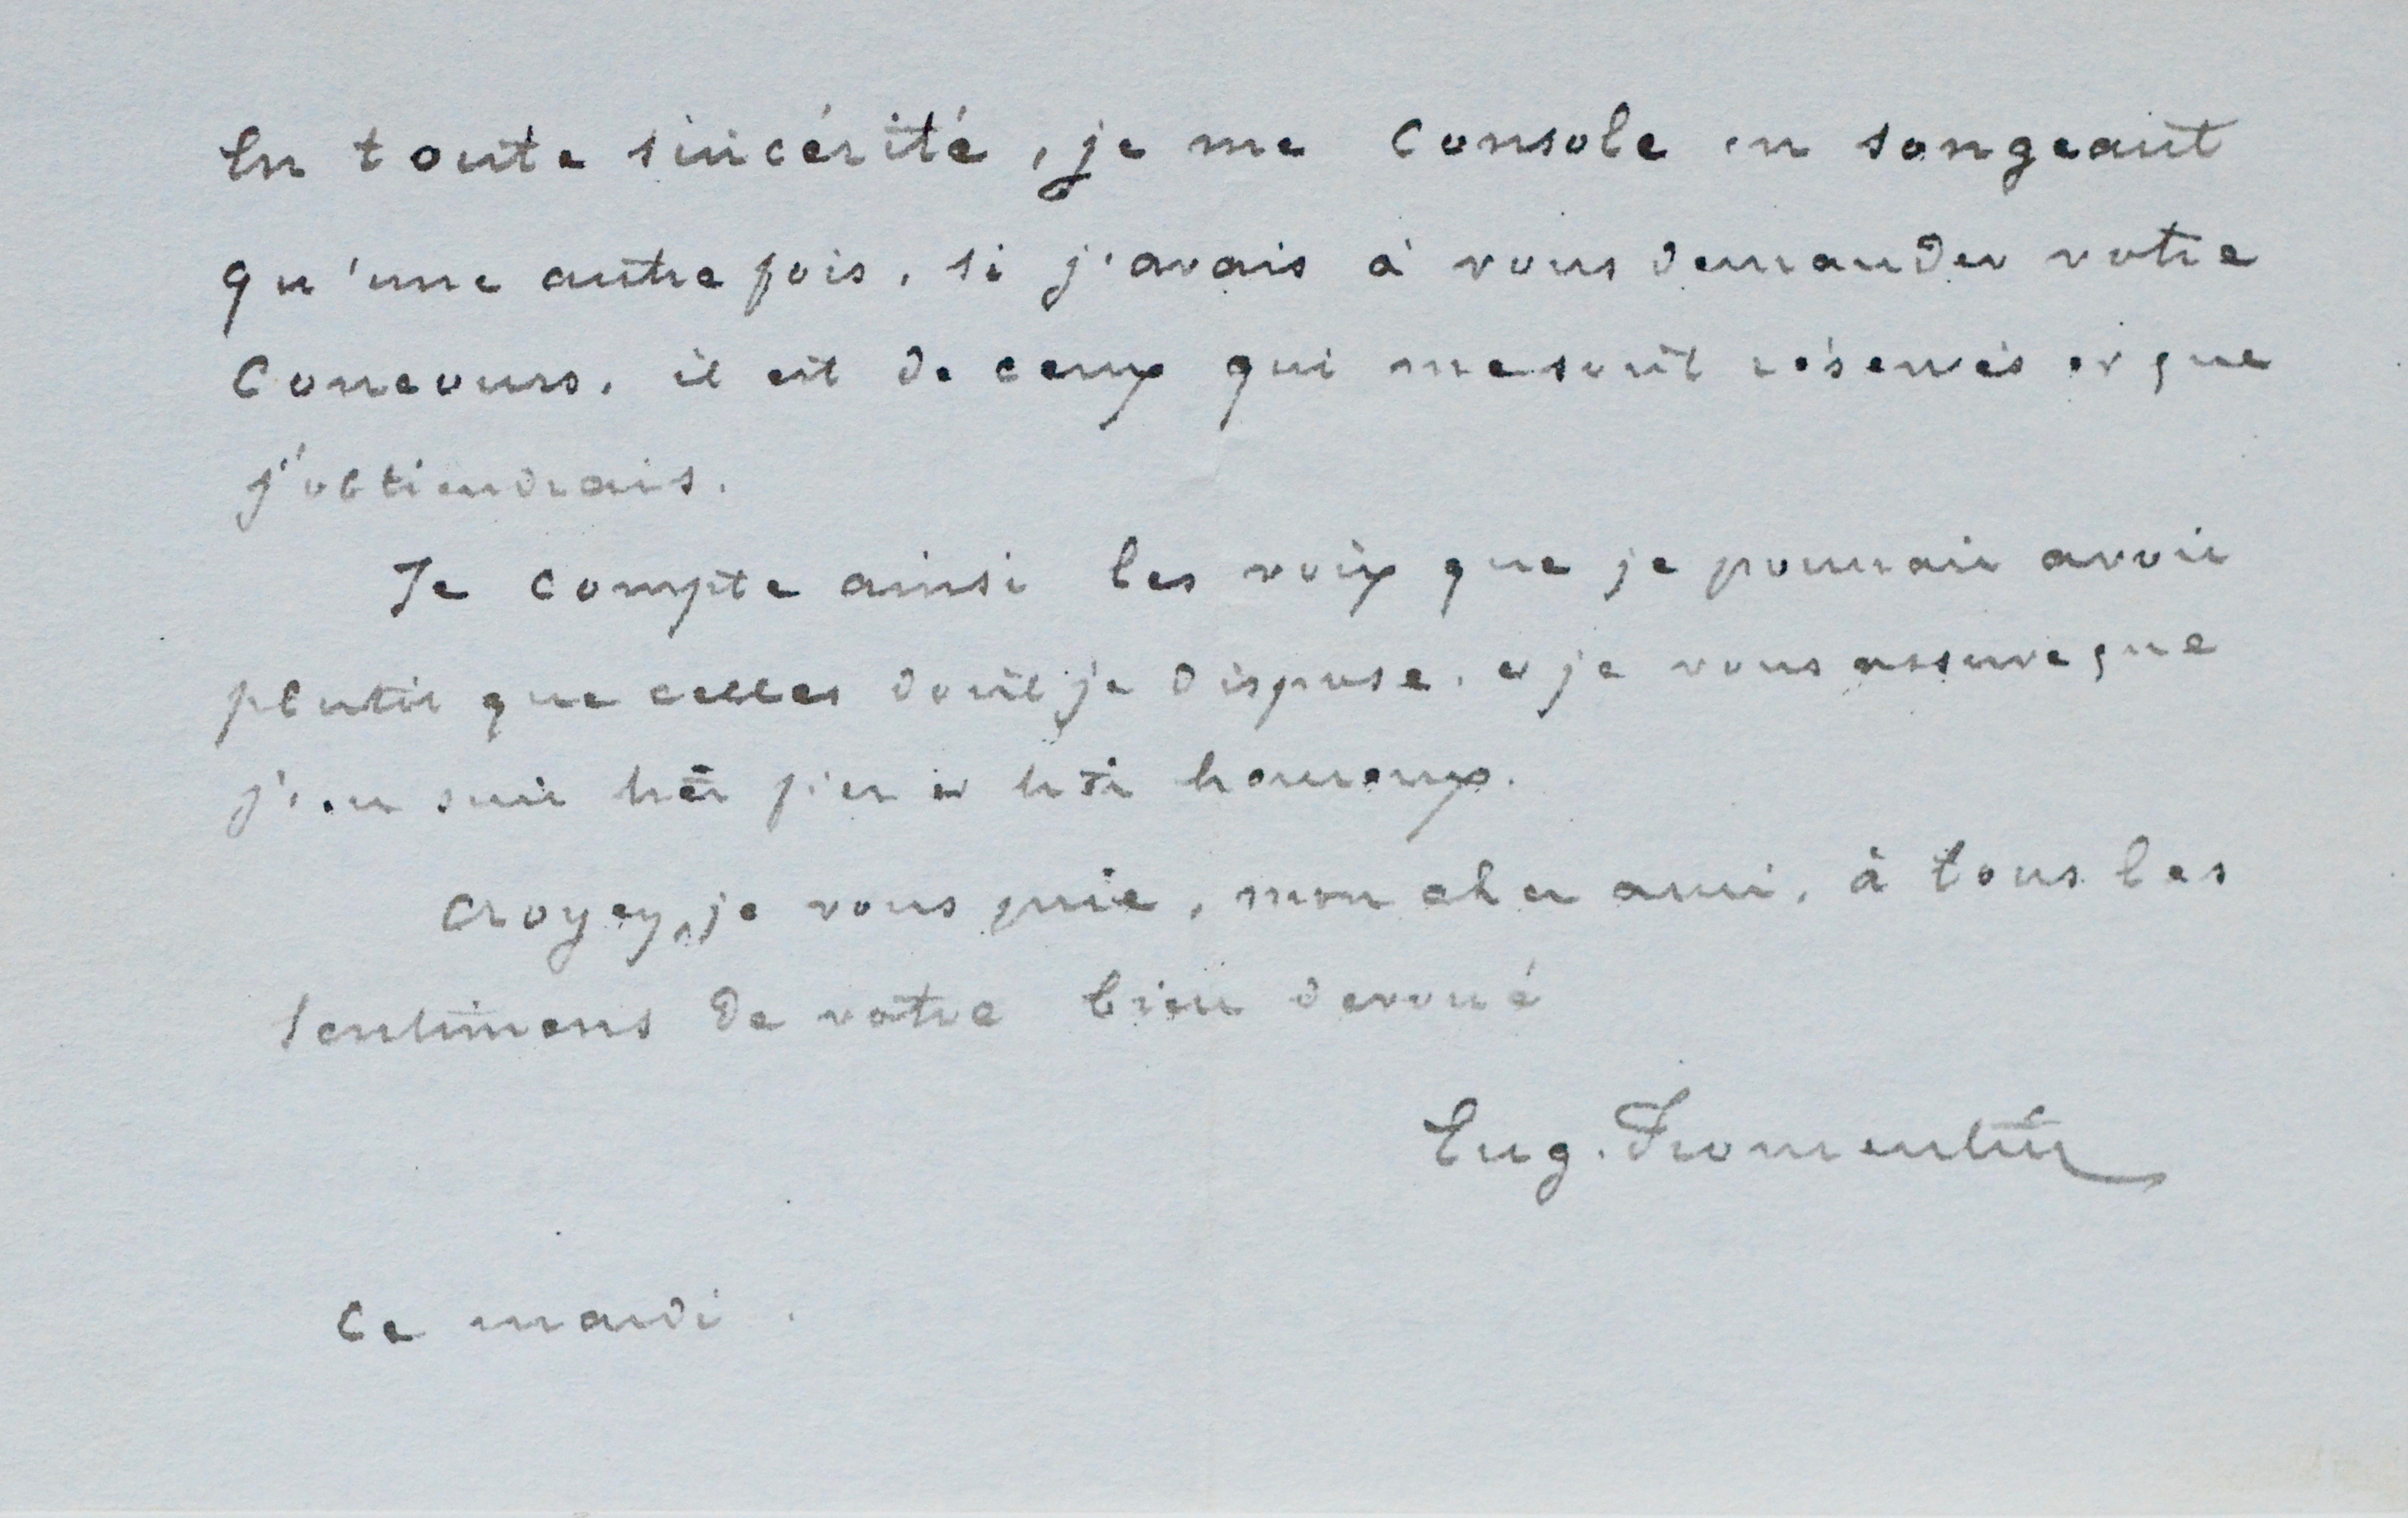 En toute sincérité, je me console en songeant
qu'une autre fois, si j'avais à vous demander votre
concours, il est de ceux qui me sont réservés et que
j'obtiendrais.
Je compte ainsi les voix que je pourrais avoir
plutôt que celles dont je dispose, et je vous assure que
j'en suis très fier et très heureux.
Croyez, je vous prie, mon cher ami, à tous les
sentimens de votre bien dévoué
Eug. Fromentin
Ce mardi.